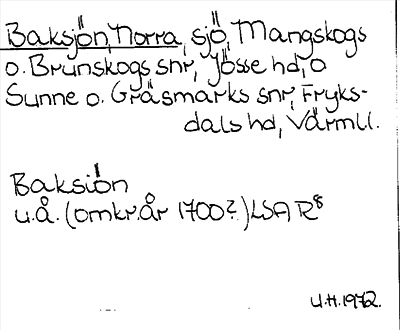 Baksjön, Norra, sjö, Mangskogs
o. Brunskogs snr, Jösse hd, o
Sunne o. Gräsmarks snr, Fryks-
dals hd, Värml.
Baksiön
u.å. (omkr. år 1700?) LSA R8
U.H. 1972.